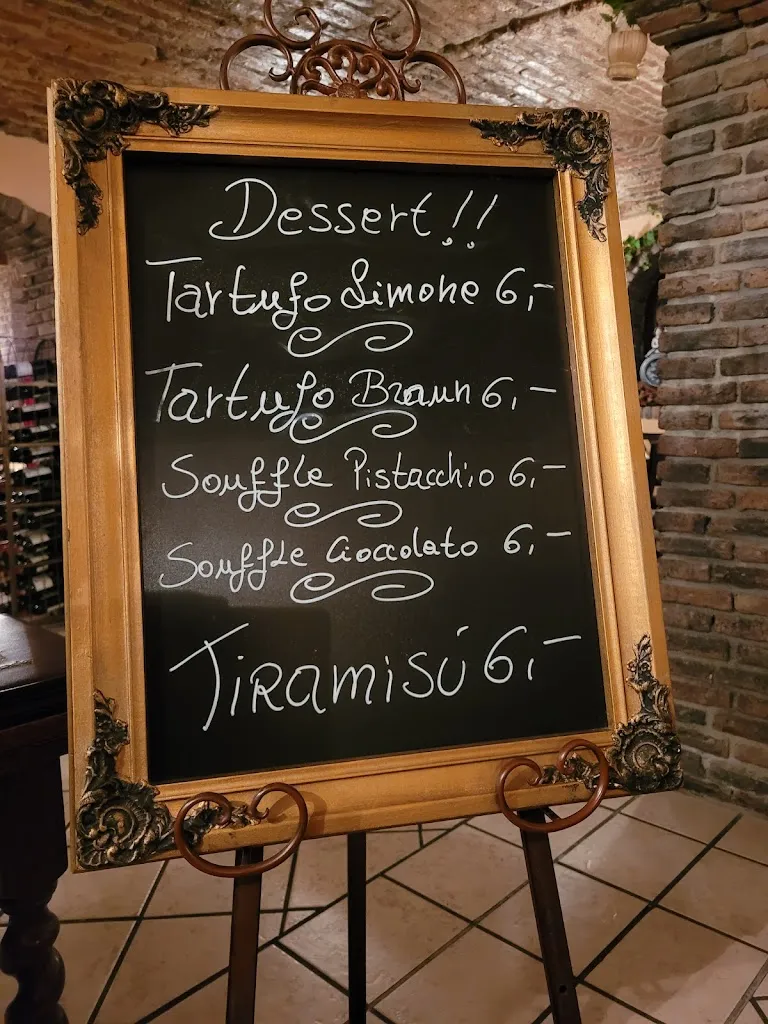 Dessert!!
Tartufo Simone 6,-
Tartufo Braun 6,-
Souffle Pistacchio 6,-
Souffle Cioccolato 6,-
Tiramisú 6,-